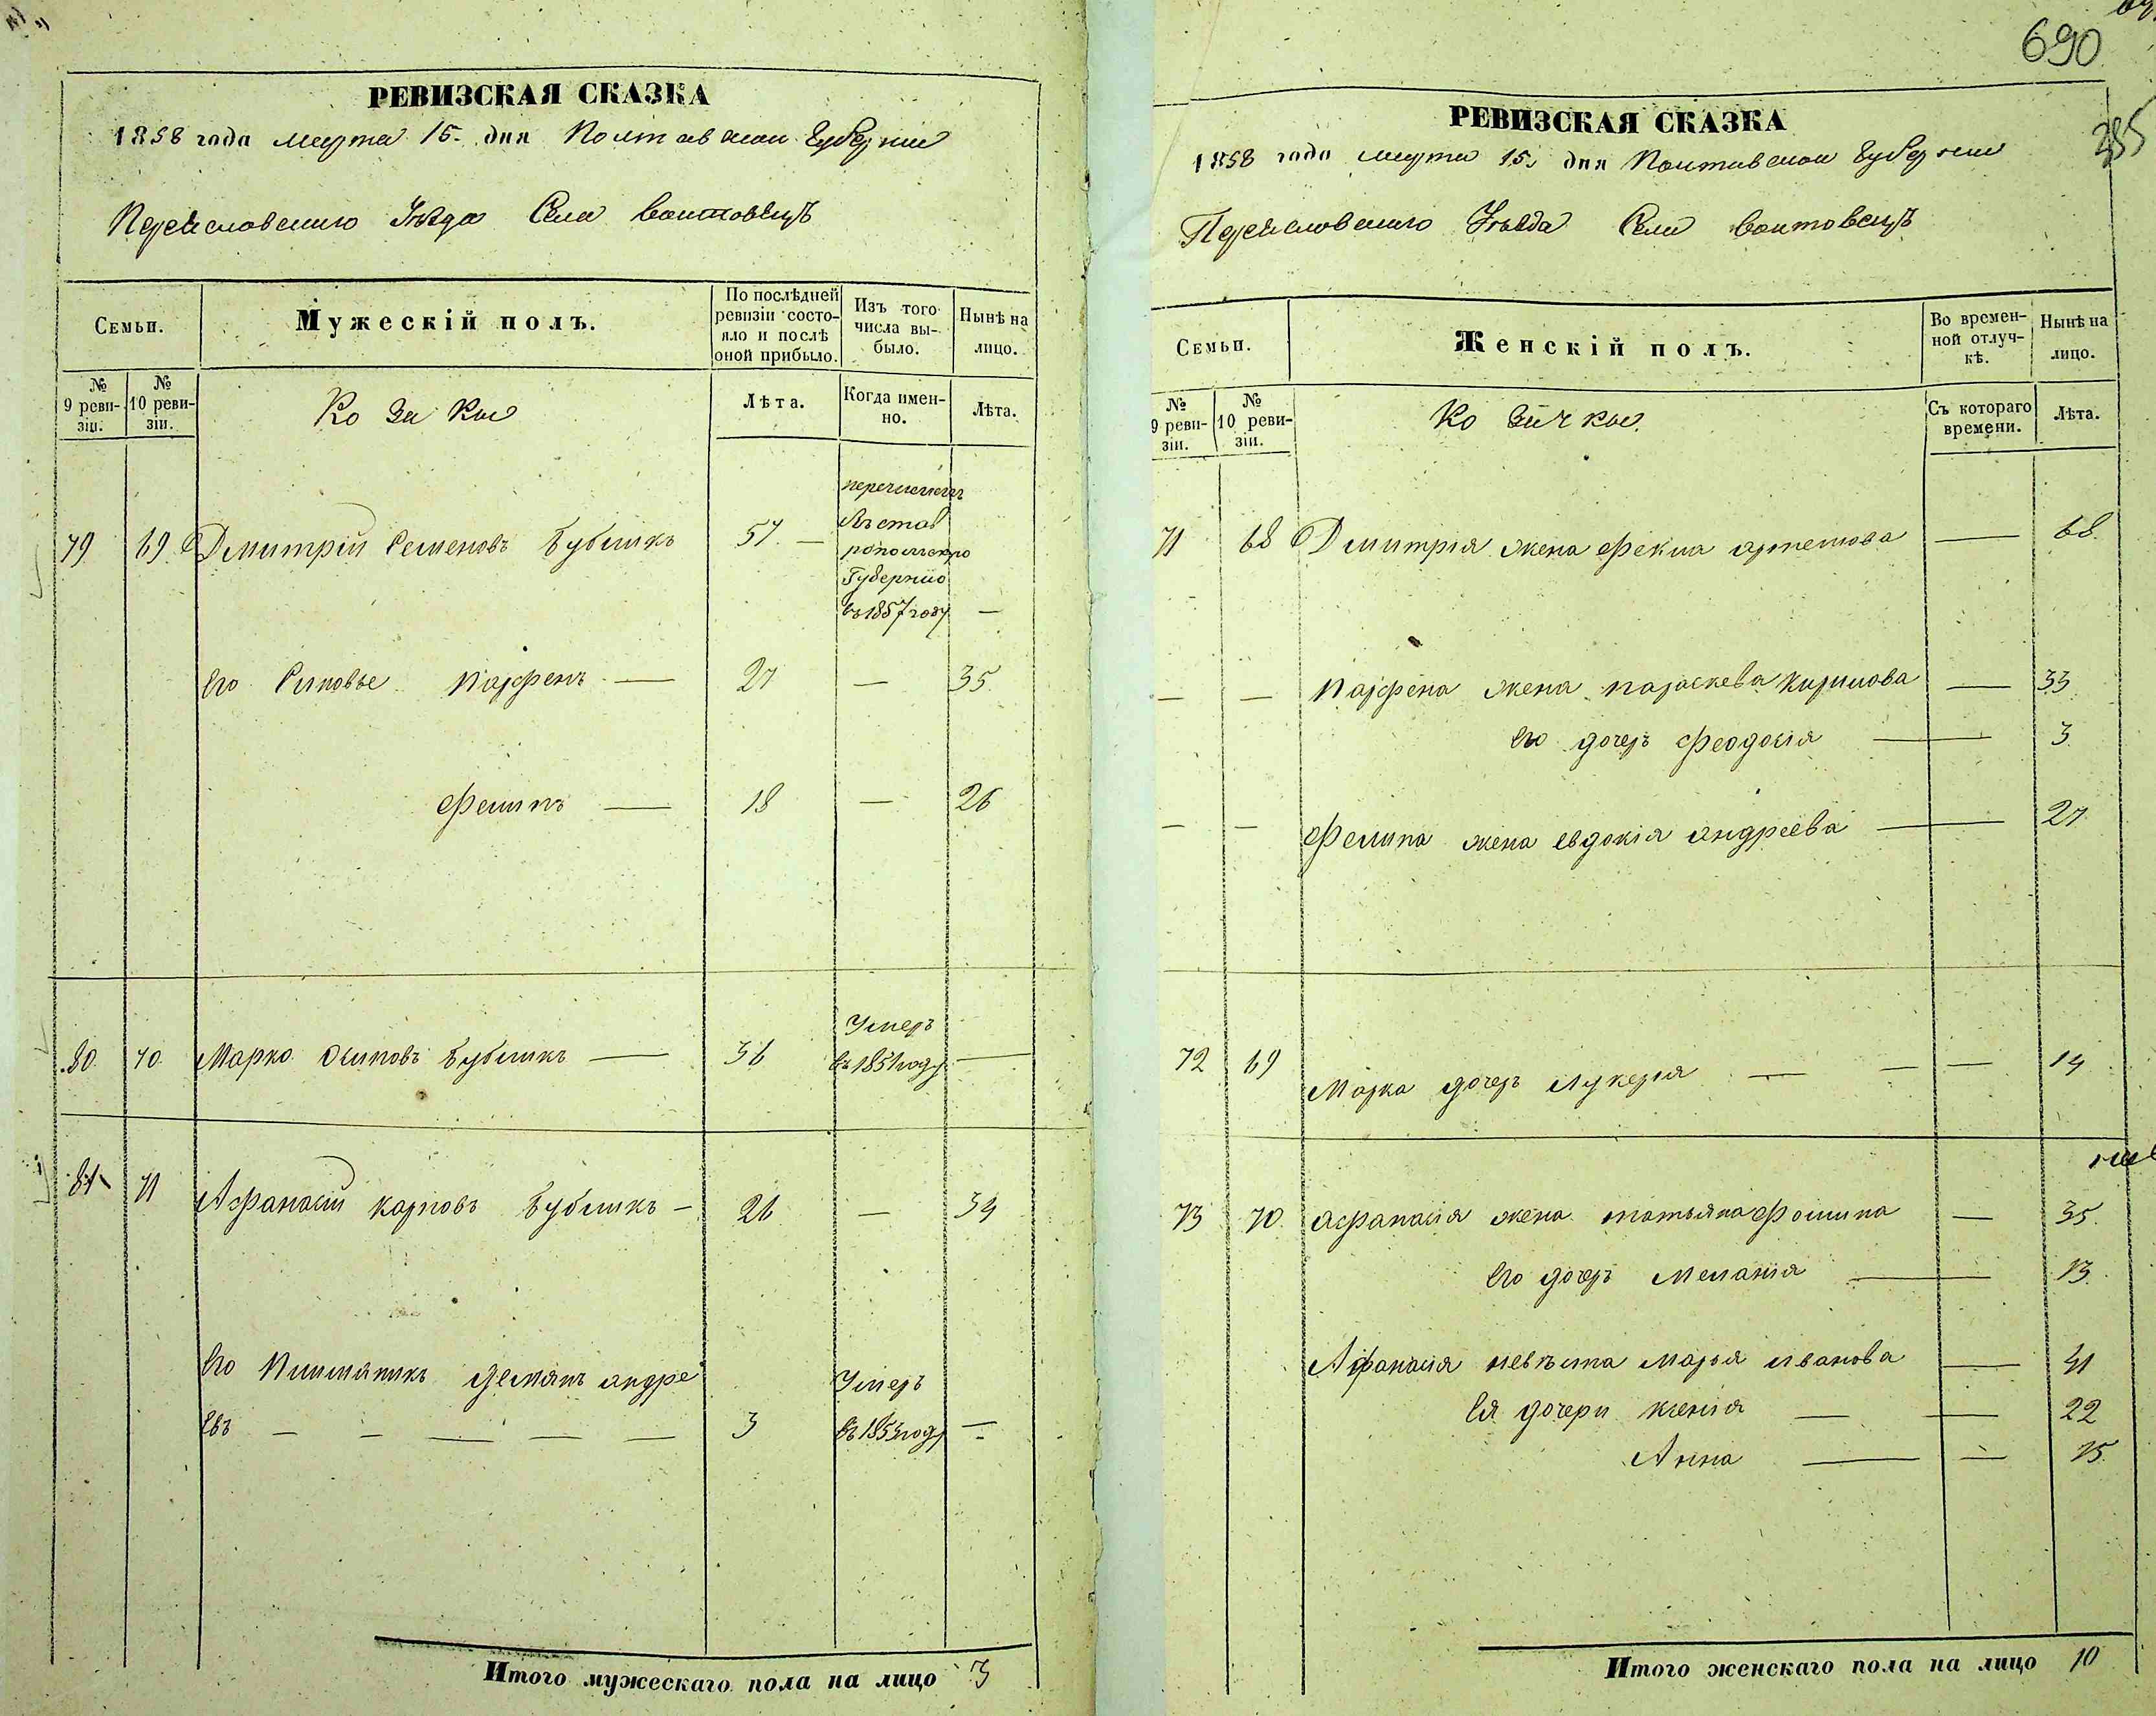 РЕВИЗСКАЯ СКАЗКА
1858 года марта 15. дня Полтавской Губернии
Переяславскаго Уѣзда Села Войтовецъ
Семьи.
Мужескій полъ.
По послѣдней ревизіи состояло и послѣ оной прибыло.
Изъ того числа выбыло.
Нынѣ на лицо.
№ 9 ревизіи.
№ 10 ревизіи.
Козаки
Лѣта.
Когда именно.
Лѣта.
перечисленъ
въ Став
рополскую
Губернию
79 69 Дмитрій Семеновъ Бубликъ 57 — въ 1857 году —
Его Синовье Парфенъ — 27 — 35
Филипъ — 18 — 26
Умеръ
80 70 Марко Осиповъ Бубликъ — 36 въ 1851 году —
81 71 Афанасій Карповъ Бубликъ — 26 — 34
Его Племяникъ Демянъ Андре Умеръ
евъ — — — — — 3 въ 1853 году —
Итого мужескаго пола на лицо 3
690
385
РЕВИЗСКАЯ СКАЗКА
1858 года марта 15. дня Полтавской Губернии
Переяславскаго Уѣзда Села Войтовецъ
Семьи.
Женскій полъ.
Во временной отлучкѣ.
Нынѣ на лицо.
№ 9 ревизіи.
№ 10 ревизіи.
Козачки
Съ котораго времени.
Лѣта.
71 68 Дмитрія жена Фекла Артемова — 68
— — Парфена жена Параскева Кирилова — 33
Его дочеръ Феодосія — 3
— — Филипа жена Евдокія Андреева — 27
72 69 Марка дочеръ Лукерія — — — 14
73 70 Афанасія жена Татьяна Фомина — 35
Его дочеръ Меланія — 13
Афанасія невѣстка Марья Иванова — 41
Ея дочери Ксенія — — 22
Анна — — 15
Итого женскаго пола на лицо 10